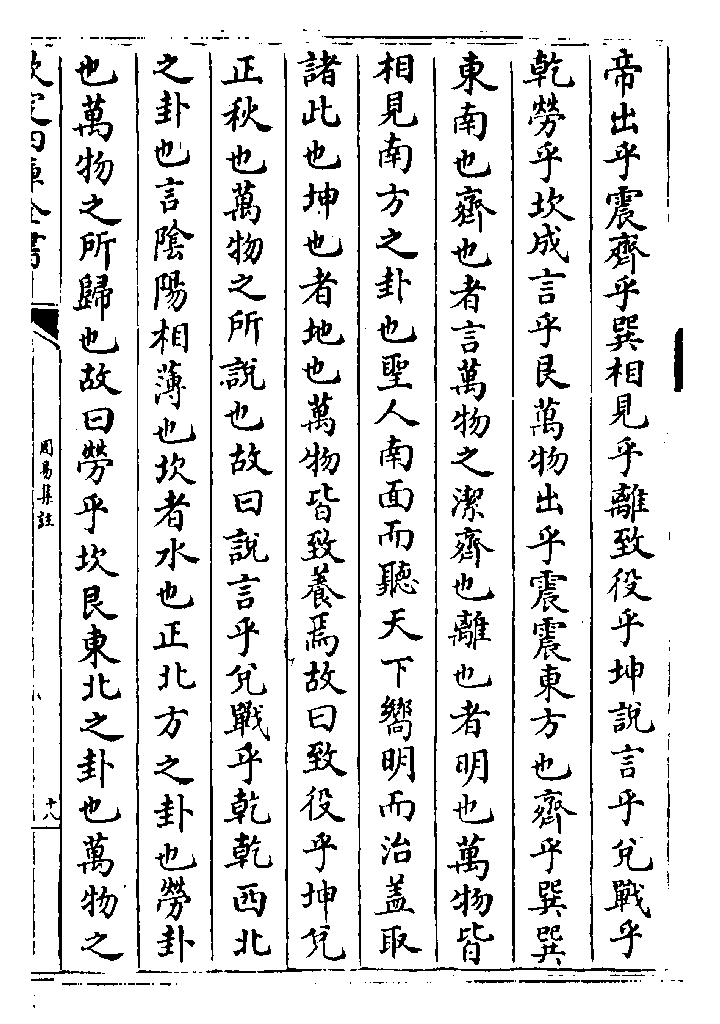 帝出乎震齊乎巽相見乎離致役乎坤說言乎兊戰乎
乾勞乎坎成言乎艮萬物出乎震震東方也齊乎巽巽
東南也齊也者言萬物之潔齊也離也者明也萬物皆
相見南方之卦也聖人南面而聽天下嚮明而治盖取
諸此也坤也者地也萬物皆致養焉故曰致役乎坤兊
正秋也萬物之所說也故曰說言乎兊戰乎乾乾西北
之卦也言陰陽相薄也坎者水也正北方之卦也勞卦
也萬物之所歸也故曰勞乎坎艮東北之卦也萬物之
欽定四庫全書
周易集註
十八